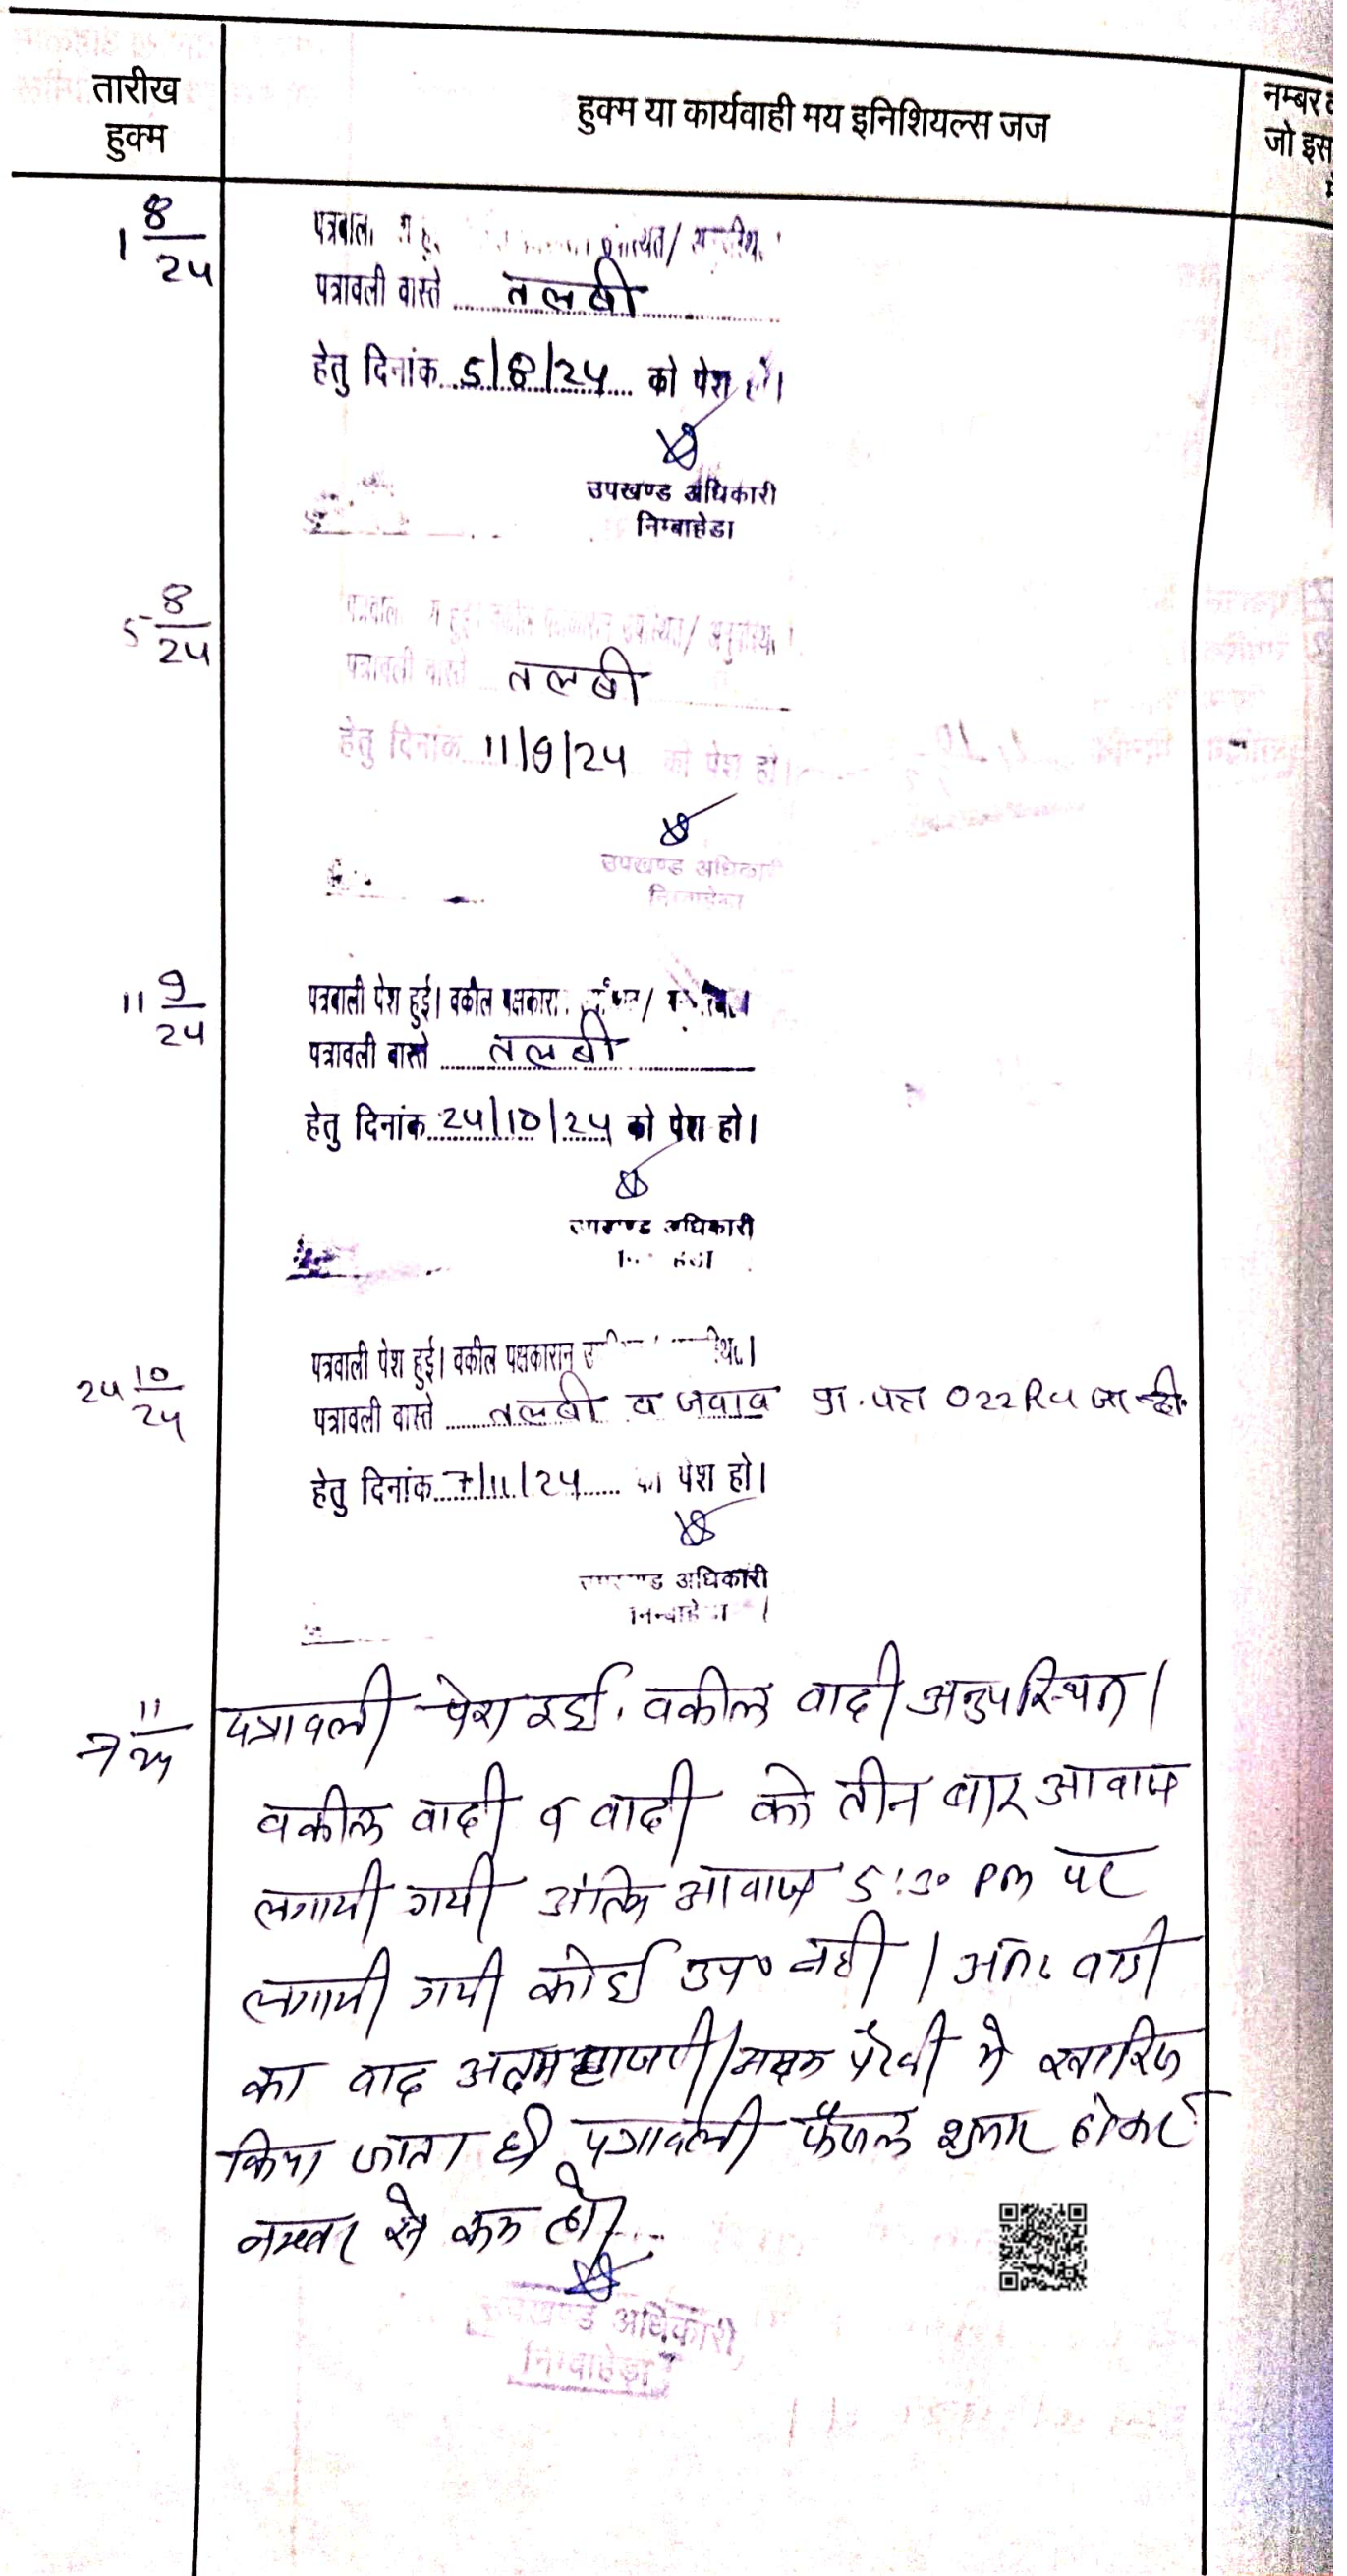 तारीख
हुक्म
हुक्म या कार्यवाही मय इनिशियल्स जज
नम्बर
जो इस
1 8/24
पत्रावली वास्ते तलबी
हेतु दिनांक 5/8/24 को पेश हो।
उपखण्ड अधिकारी
निम्बाहेडा
5 8/24
पत्रावली वास्ते तलबी
हेतु दिनांक 11/9/24 को पेश हो।
उपखण्ड अधिकारी
निम्बाहेडा
11 9/24
पत्रवाली पेश हुई। वकील पक्षकारा
पत्रावली वास्ते तलबी
हेतु दिनांक 24/10/24 को पेश हो।
उपखण्ड अधिकारी
24 10/24
पत्रवाली पेश हुई। वकील पक्षकारान्
पत्रावली वास्ते तलबी व जवाब प्रा. पत्र O22R4 जा दी.
हेतु दिनांक 7/11/24 को पेश हो।
उपखण्ड अधिकारी
निम्बाहेडा
7 11/24
पत्रावली पेश हुई. वकील वादी अनुपस्थित।
वकील वादी व वादी को तीन बार आवाज
लगायी गयी अंतिम आवाज 5:30 PM पर
लगायी गयी कोई उप० नही। अतः वादी
का वाद अदम हाजरी/अदम पैरवी मे खारिज
किया जाता है। पत्रावली फैसल शुमार होकर
नम्बर से कम हो।
उपखण्ड अधिकारी
निम्बाहेड़ा